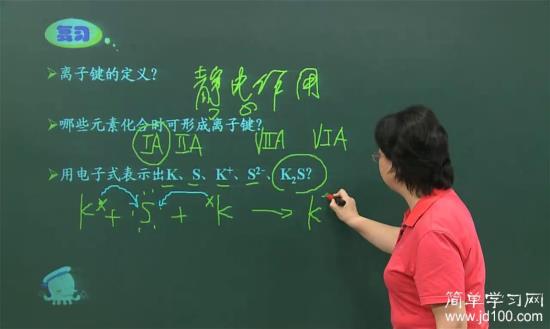 复习
➢离子键的定义?
静电作用
➢哪些元素化合时可形成离子键?
ⅠA ⅡA ⅦA ⅥA
➢用电子式表示出K、S、K⁺、S²⁻、K₂S?
K× + S + ×K → K
简单学习网
www.jd100.com